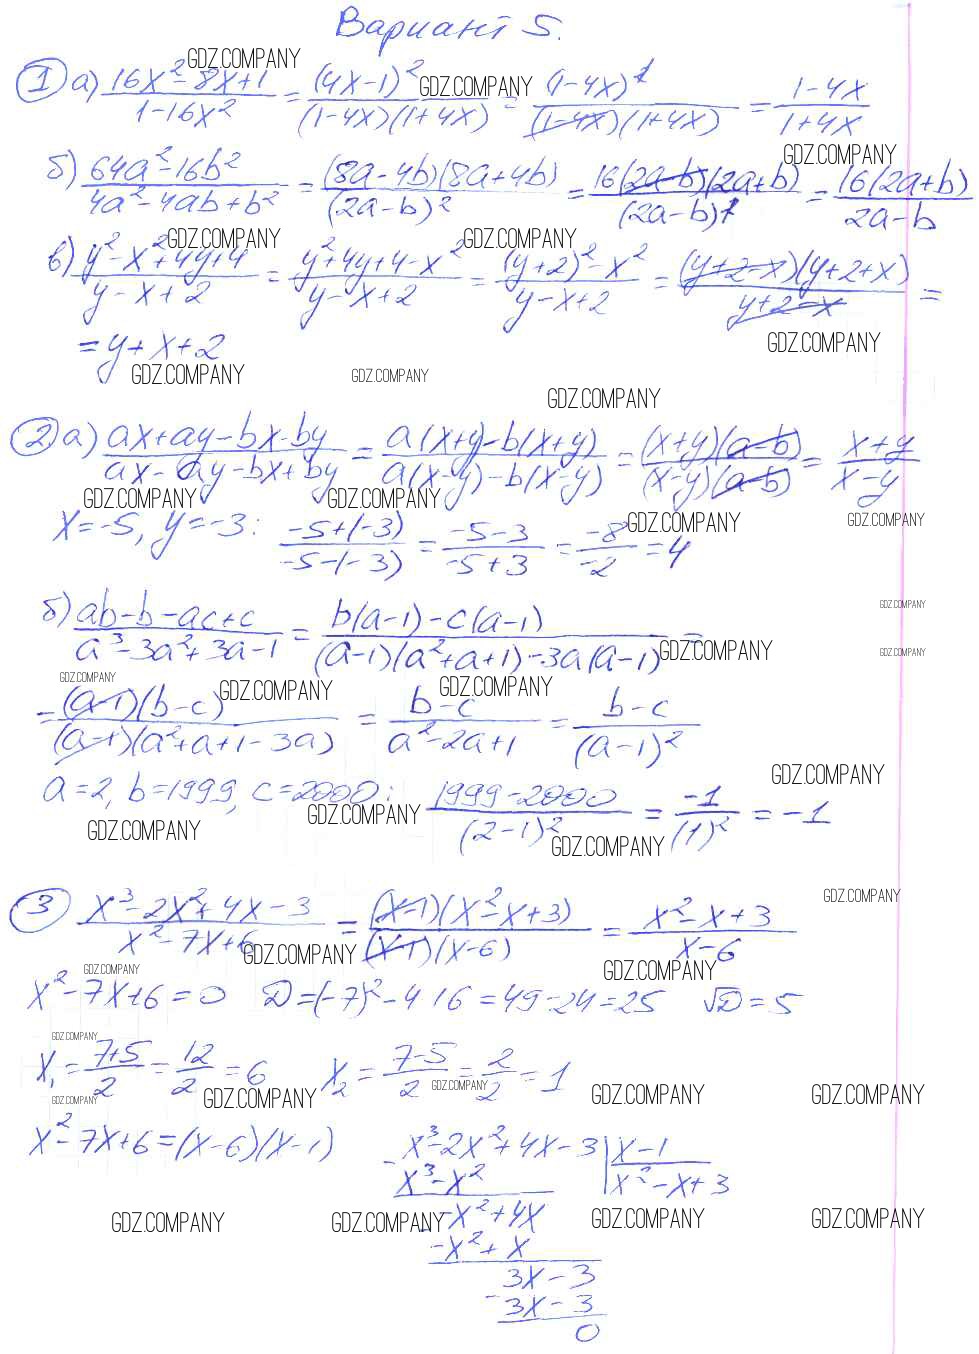 Вариант 5.
GDZ.COMPANY
① а) (16x² - 8x + 1)/(1 - 16x²) = (4x - 1)²/((1 - 4x)(1 + 4x)) = (1 - 4x)²/((1 - 4x)(1 + 4x)) = (1 - 4x)/(1 + 4x)
GDZ.COMPANY
GDZ.COMPANY
б) (64a² - 16b²)/(4a² - 4ab + b²) = (8a - 4b)(8a + 4b)/(2a - b)² = 16(2a - b)(2a + b)/(2a - b)² = 16(2a + b)/(2a - b)
GDZ.COMPANY GDZ.COMPANY
в) (y² - x² + 4y + 4)/(y - x + 2) = (y² + 4y + 4 - x²)/(y - x + 2) = ((y + 2)² - x²)/(y - x + 2) = (y + 2 - x)(y + 2 + x)/(y + 2 - x) =
= y + x + 2
GDZ.COMPANY
GDZ.COMPANY GDZ.COMPANY
GDZ.COMPANY
② а) (ax + ay - bx - by)/(ax - ay - bx + by) = (a(x + y) - b(x + y))/(a(x - y) - b(x - y)) = (x + y)(a - b)/((x - y)(a - b)) = (x + y)/(x - y)
GDZ.COMPANY GDZ.COMPANY
GDZ.COMPANY GDZ.COMPANY
x = -5, y = -3: (-5 + (-3))/(-5 - (-3)) = (-5 - 3)/(-5 + 3) = -8/-2 = 4
GDZ.COMPANY
б) (ab - b - ac + c)/(a³ - 3a² + 3a - 1) = (b(a - 1) - c(a - 1))/((a - 1)(a² + a + 1) - 3a(a - 1)) =
GDZ.COMPANY GDZ.COMPANY
GDZ.COMPANY GDZ.COMPANY GDZ.COMPANY
= (a - 1)(b - c)/((a - 1)(a² + a + 1 - 3a)) = (b - c)/(a² - 2a + 1) = (b - c)/(a - 1)²
GDZ.COMPANY
a = 2, b = 1999, c = 2000: (1999 - 2000)/(2 - 1)² = -1/(1)² = -1
GDZ.COMPANY
GDZ.COMPANY GDZ.COMPANY
GDZ.COMPANY
③ (x³ - 2x² + 4x - 3)/(x² - 7x + 6) = (x - 1)(x² - x + 3)/((x - 1)(x - 6)) = (x² - x + 3)/(x - 6)
GDZ.COMPANY
GDZ.COMPANY GDZ.COMPANY
x² - 7x + 6 = 0 D = (-7)² - 4·1·6 = 49 - 24 = 25 √D = 5
GDZ.COMPANY
x₁ = (7 + 5)/2 = 12/2 = 6 x₂ = (7 - 5)/2 = 2/2 = 1
GDZ.COMPANY GDZ.COMPANY GDZ.COMPANY GDZ.COMPANY GDZ.COMPANY
x² - 7x + 6 = (x - 6)(x - 1) - x³ - 2x² + 4x - 3 | x - 1
x³ - x² | x² - x + 3
GDZ.COMPANY GDZ.COMPANY GDZ.COMPANY GDZ.COMPANY
- -x² + 4x
-x² + x
3x - 3
- 3x - 3
0